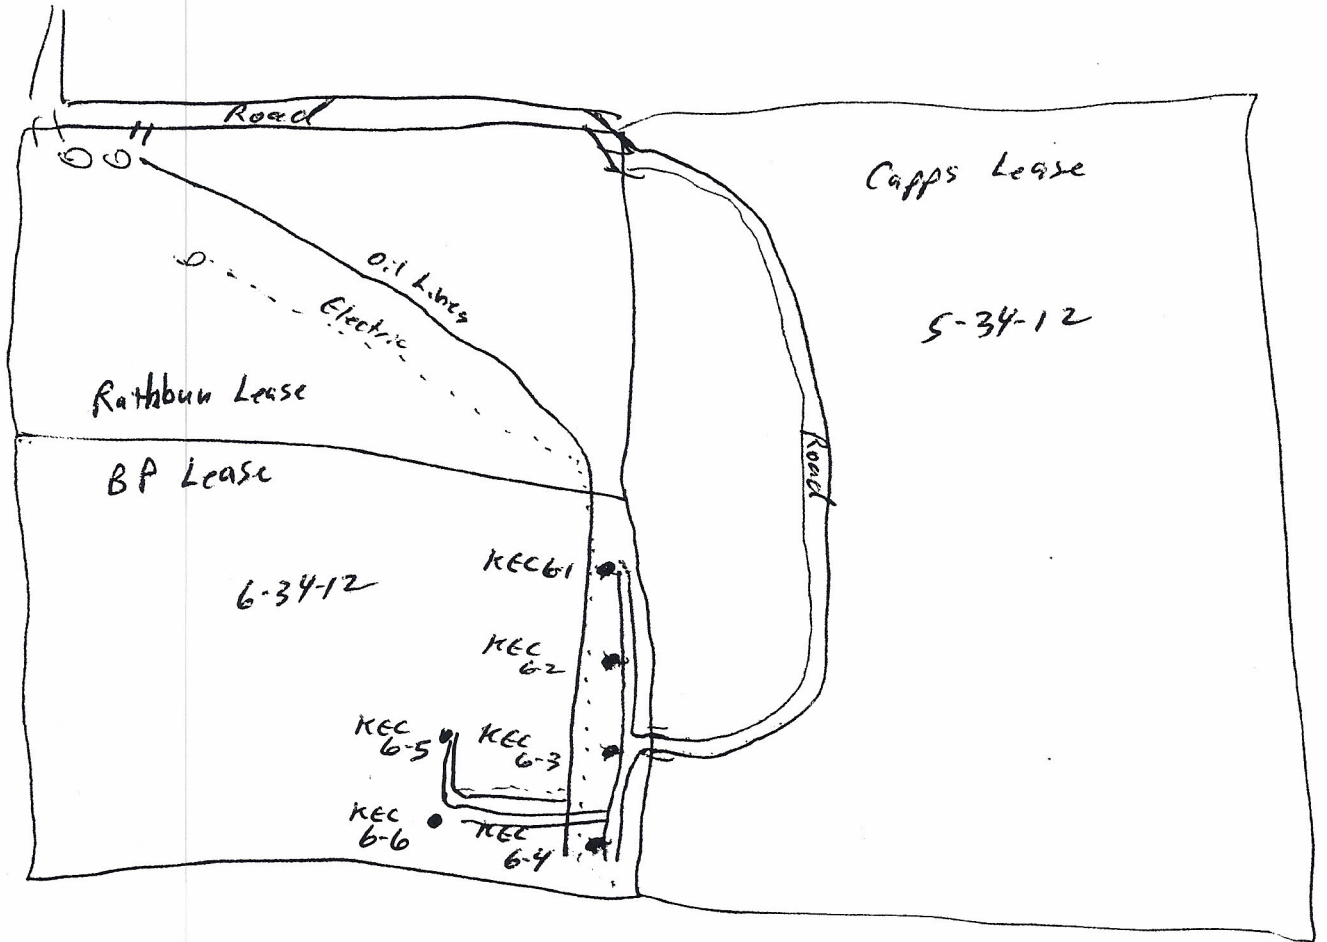 Road
Capps Lease
Oil Lines
Electric
5-34-12
Rathbun Lease
Road
BP Lease
KEC 6-1
6-34-12
KEC
6-2
KEC
6-5
KEC
6-3
KEC
6-6
KEC
6-4